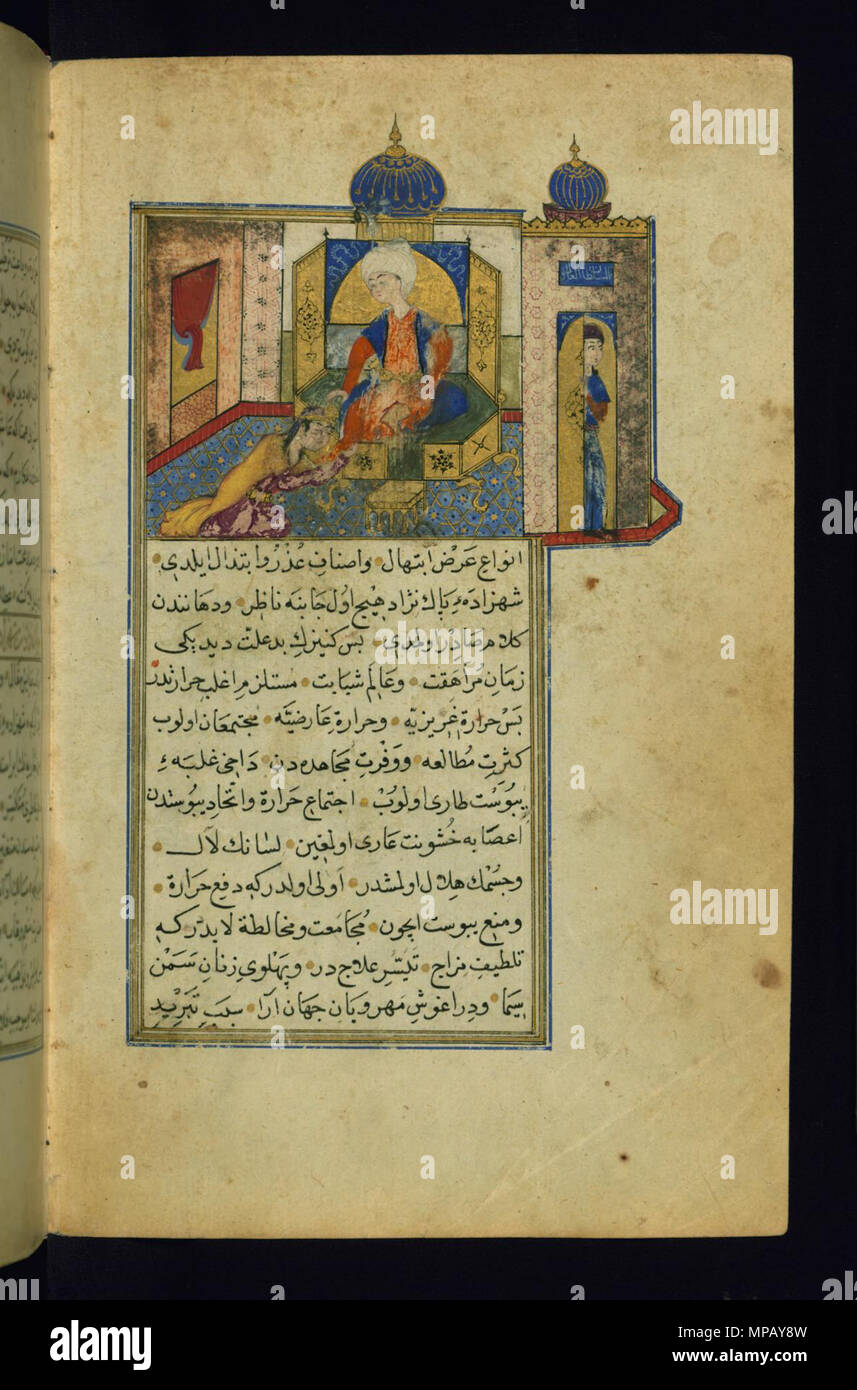 السلطان العالم
انواع عَرْض ابتهال واصنافِ عُذْرُ وابتذال ايلدى
شهزادهٔ پاك نژاد هيچ اول جانبه ناظر ودهانندن
كلام صادر اولمدى بس كنيزك بدعلت ديديكى
زمانِ مراهقت وعالم شبابت مستلزم اغلب حرارتدر
بس حرارة غريزيه وحرارة عارضيّه مجتمعان اولوب
كثرتِ مُطالعه ووفرتِ مجاهده دن داخى غلبهٔ
يبوُست طارى اولوُب اجتماع حَرارة واتحاد يبوُستدن
اعصابه خشونت عارى اولمغين لسانك لال
وجسمك هلال اولمشدر اولى اولدركه دفع حرارة
ومنع يبوست ايچون مُجامعت ومخالطة لابدّركه
تلطيفِ مزاج تيسّر علاجدر وپهلوىِ زنانِ سَمَنْ
سيما ودر اغوشِ مهرويان جهان ارا سببِ تبريدِ
alamy
Image ID: MPAY8W
www.alamy.com